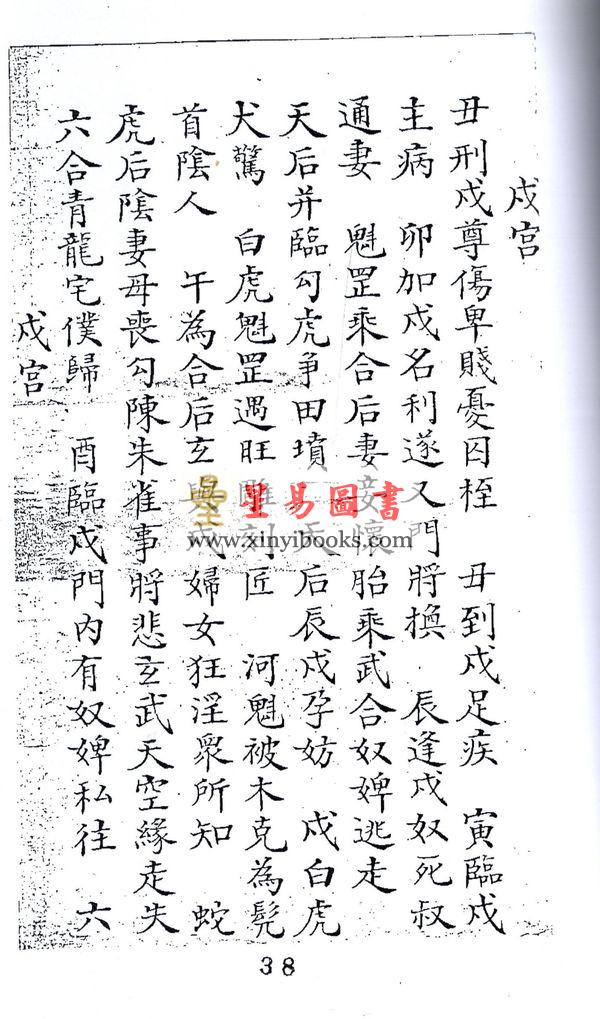 戌宮
丑刑戌尊傷卑賤憂囚桎　丑到戌足疾　寅臨戌
主病　卯加戌名利遂又門將換　辰逢戌奴死叔
通妻　魁罡乘合后妻妾懷胎乘武合奴婢逃走
天后并臨勾虎爭田墳　天后辰戌孕妨　戌白虎
犬驚　白虎魁罡遇旺雕刻匠　河魁被木克為髡
首陰人　午為合后玄與戌婦女狂淫眾所知　蛇
虎后陰妻母喪勾陳朱雀事將悲玄武天空緣走失
六合青龍宅僕歸　酉臨戌門內有奴婢私往　六
戌宮
星易圖書
www.xinyibooks.com
38